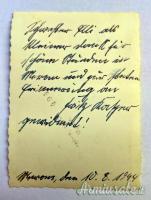 Schwester Elli als
kleiner Dank für
schöne Stunden in
Meran und zur steten
Erinnerung an
gewidmet!
Meran, den 10. 8. 1944